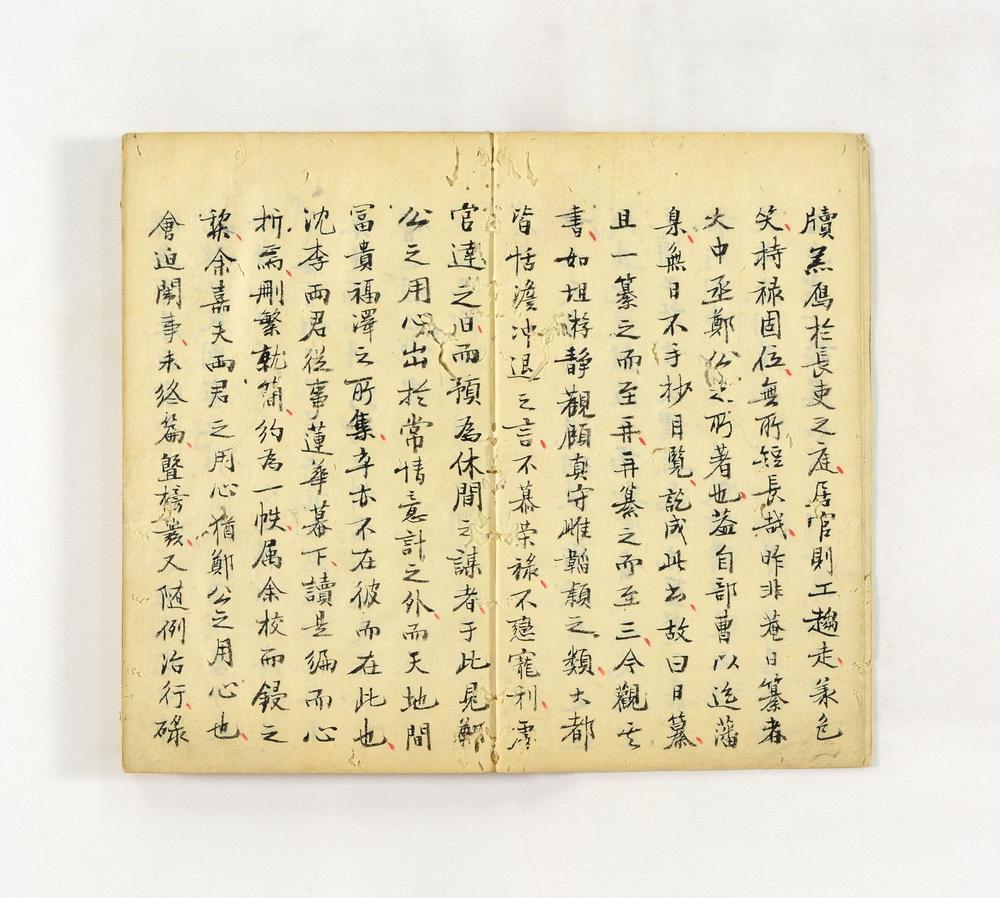 牘羔鴈於長吏之庭居官則工趨走美色
笑持禄固位無所短長哉昨非菴日纂者
大中丞鄭公之所著也葢自部曹以迄藩
臬無日不手抄目覧訖成此書故曰日纂
且一纂之而至再再纂之而至三今觀其
書如坦游靜觀頤真守雌韜穎之類大都
皆恬澹冲退之言不慕荣祿不戀寵利當
官達之日而預為休閒之謀者于此見鄭
公之用心出於常情意計之外而天地間
冨貴福澤之所集卒亦不在彼而在此也
沈李兩君従事蓮華幕下讀是編而心
折焉刪繁就簡約為一帙属余校而鋟之
棃余嘉夫兩君之用心猶鄭公之用心也
會迫闈事未终篇盬榜葢又随例治行碌